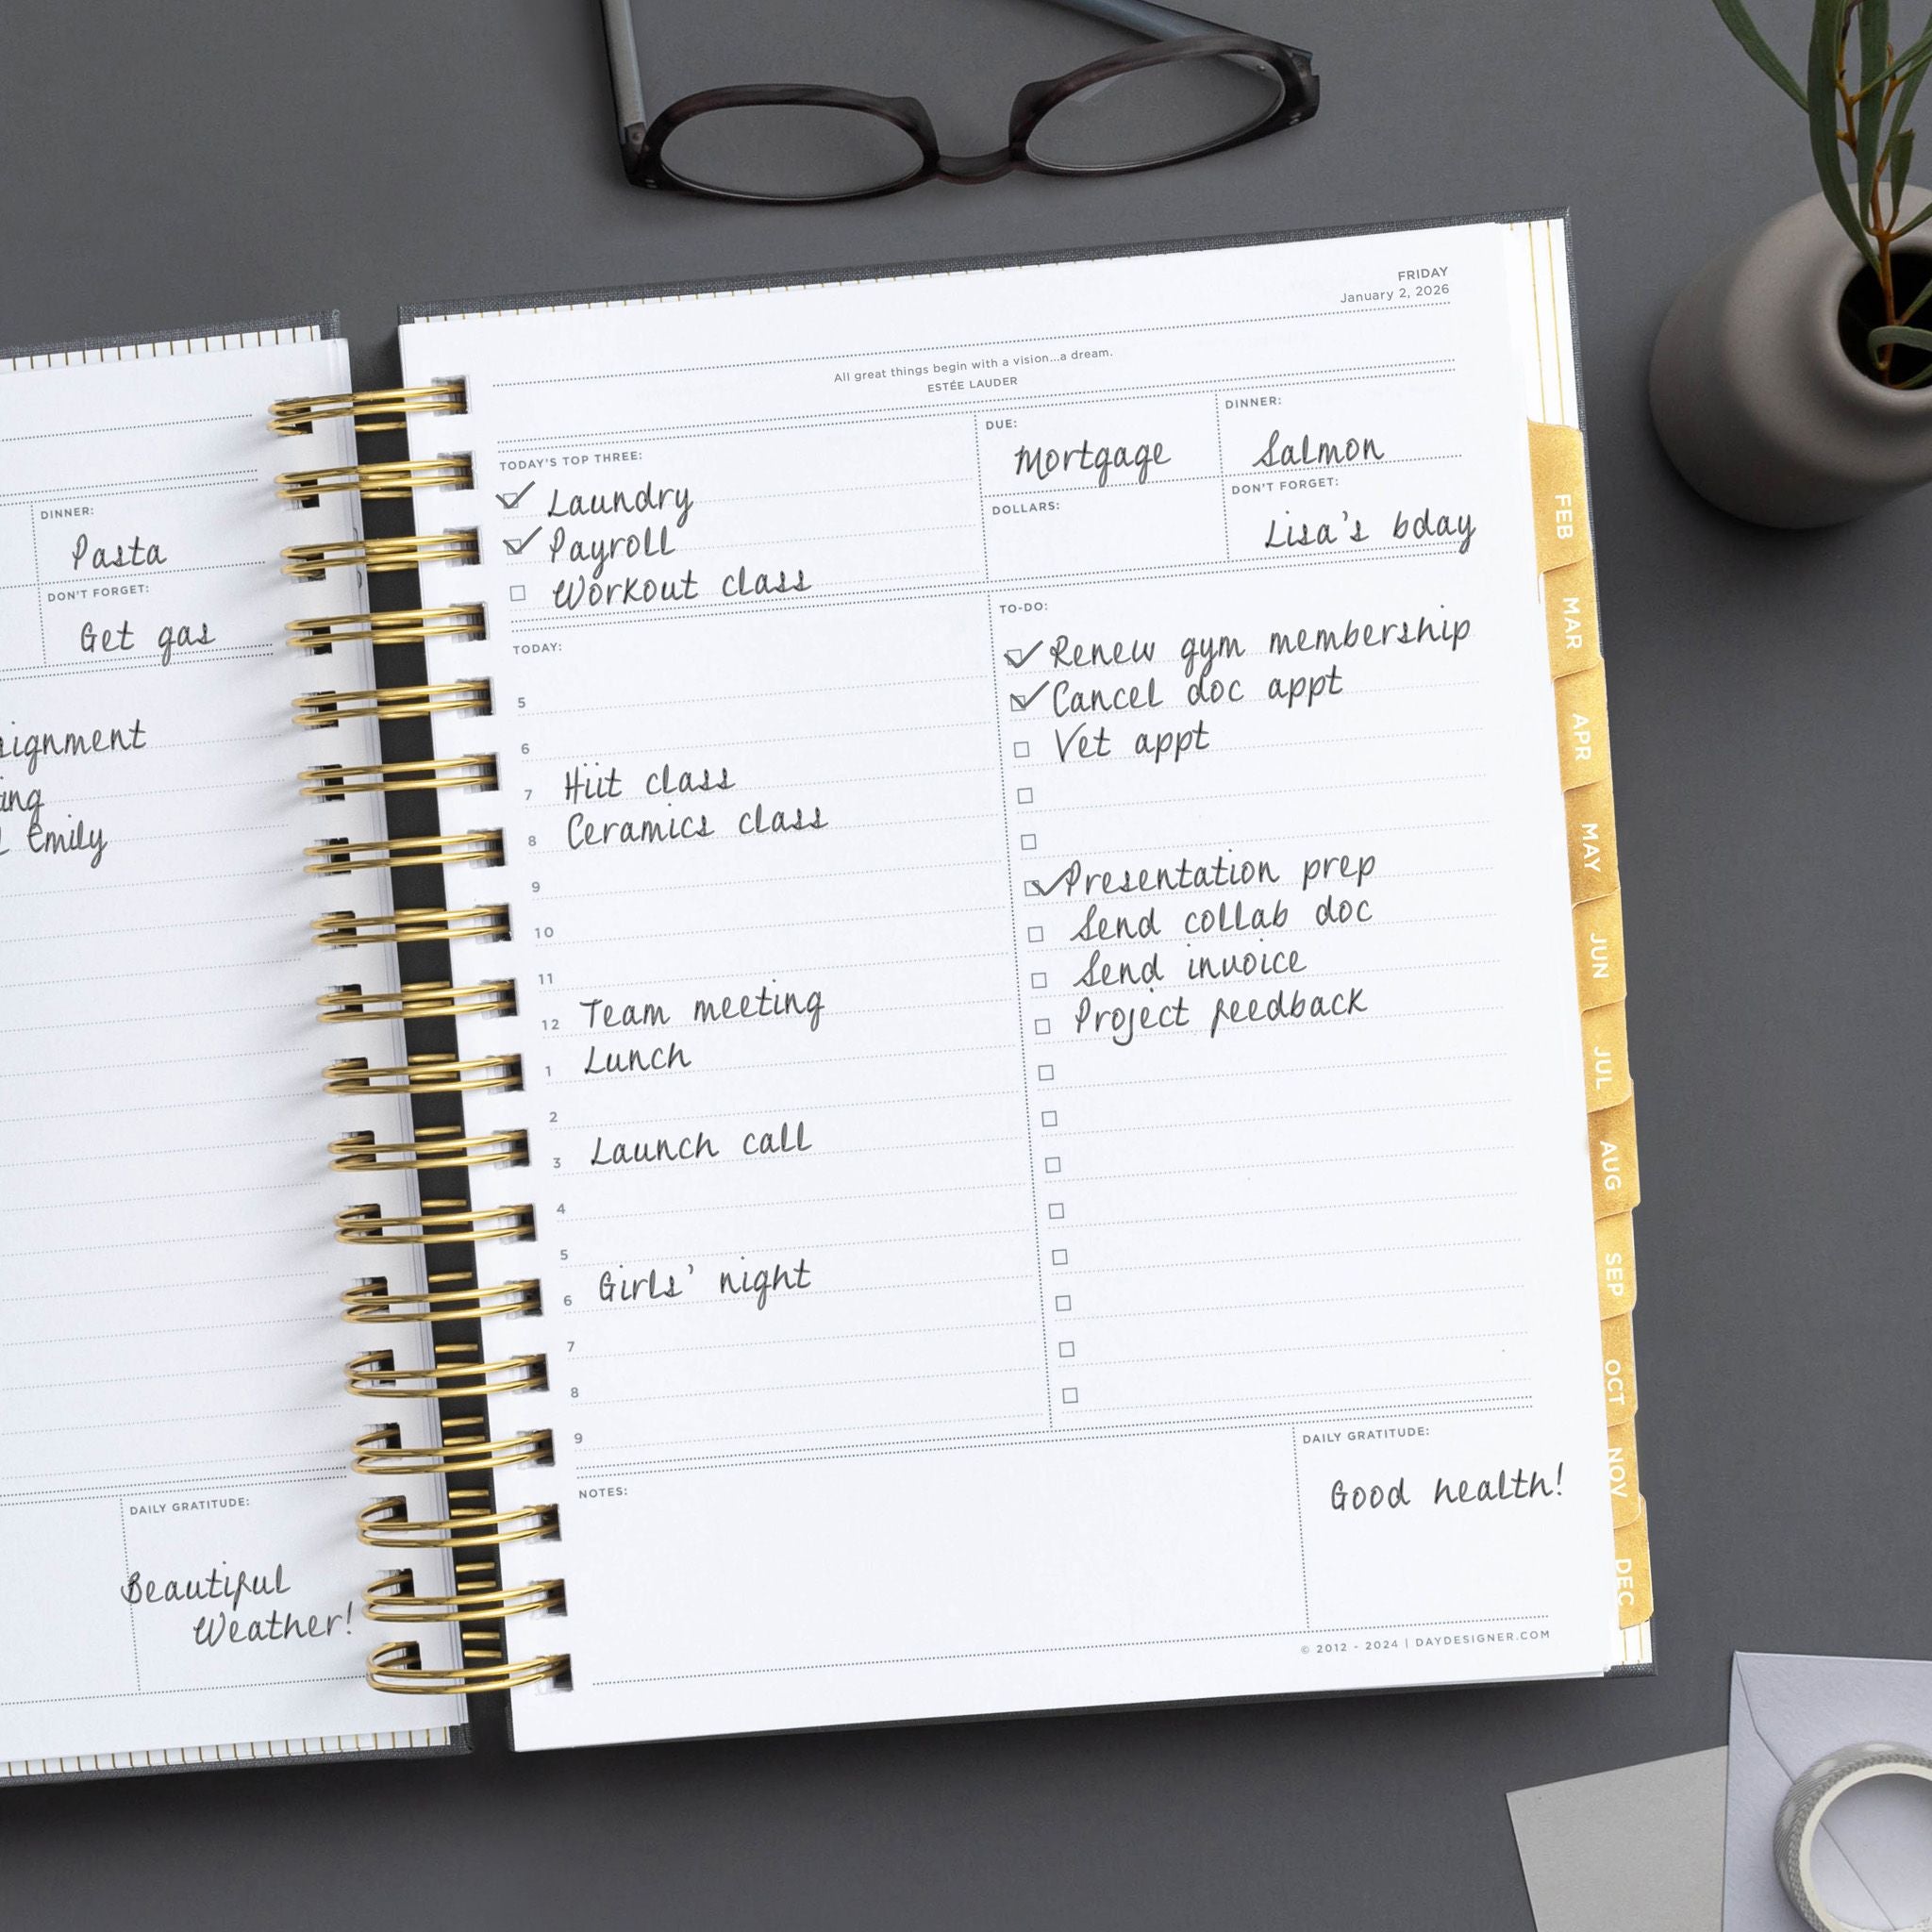 DINNER:
Pasta
DON'T FORGET:
Get gas
Emily
DAILY GRATITUDE:
Beautiful
Weather!
FRIDAY
January 2, 2026
All great things begin with a vision...a dream.
ESTÉE LAUDER
TODAY'S TOP THREE:
Laundry
Payroll
Workout class
DUE:
Mortgage
DINNER:
Salmon
DOLLARS:
DON'T FORGET:
Lisa's bday
TODAY:
5
6
7 Hiit class
8 Ceramics class
9
10
11
12 Team meeting
1 Lunch
2
3 Launch call
4
5
6 Girls' night
7
8
9
TO-DO:
Renew gym membership
Cancel doc appt
Vet appt
Presentation prep
Send collab doc
Send invoice
Project feedback
NOTES:
DAILY GRATITUDE:
Good health!
© 2012 - 2024 | DAYDESIGNER.COM
FEB
MAR
APR
MAY
JUN
JUL
AUG
SEP
OCT
NOV
DEC